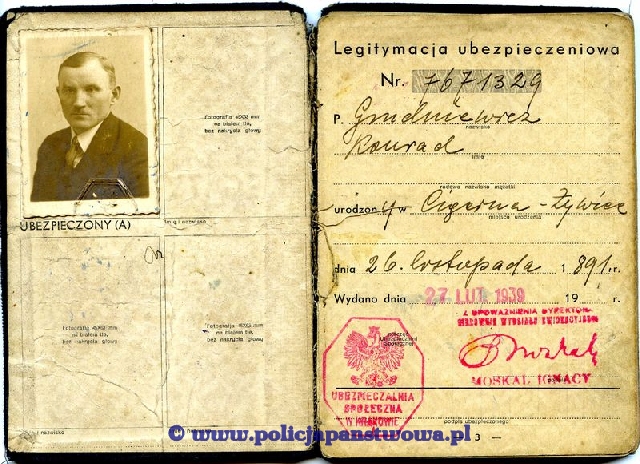 fotografia 4X52 mm
na białem tle,
bez nakrycia głowy
UBEZPIECZONY (A)
fotografia 4X52 mm
na białem tle,
bez nakrycia głowy
fotografia 4X52 mm
na białem tle,
bez nakrycia głowy
Legitymacja ubezpieczeniowa
Nr. 7671329
P. Grudniewicz
nazwisko
Konrad
imię
urodzony w Cięcina - Żywiec
dnia 26 listopada 1891 r.
Wydano dnia 27 LUT 1939 19 r.
Z UPOWAŻNIENIA DYREKTORA
MOSKAL IGNACY
UBEZPIECZALNIA
SPOŁECZNA
W KRAKOWIE
podpis ubezpieczonego
3 —
© www.policjapanstwowa.pl